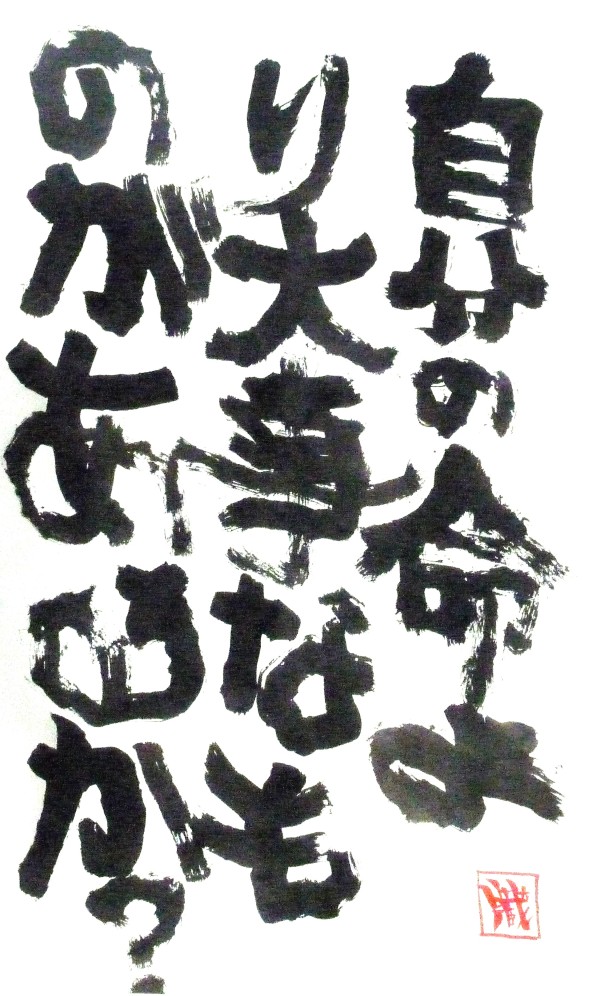 自分の命よ
り大事なも
のがあるか?